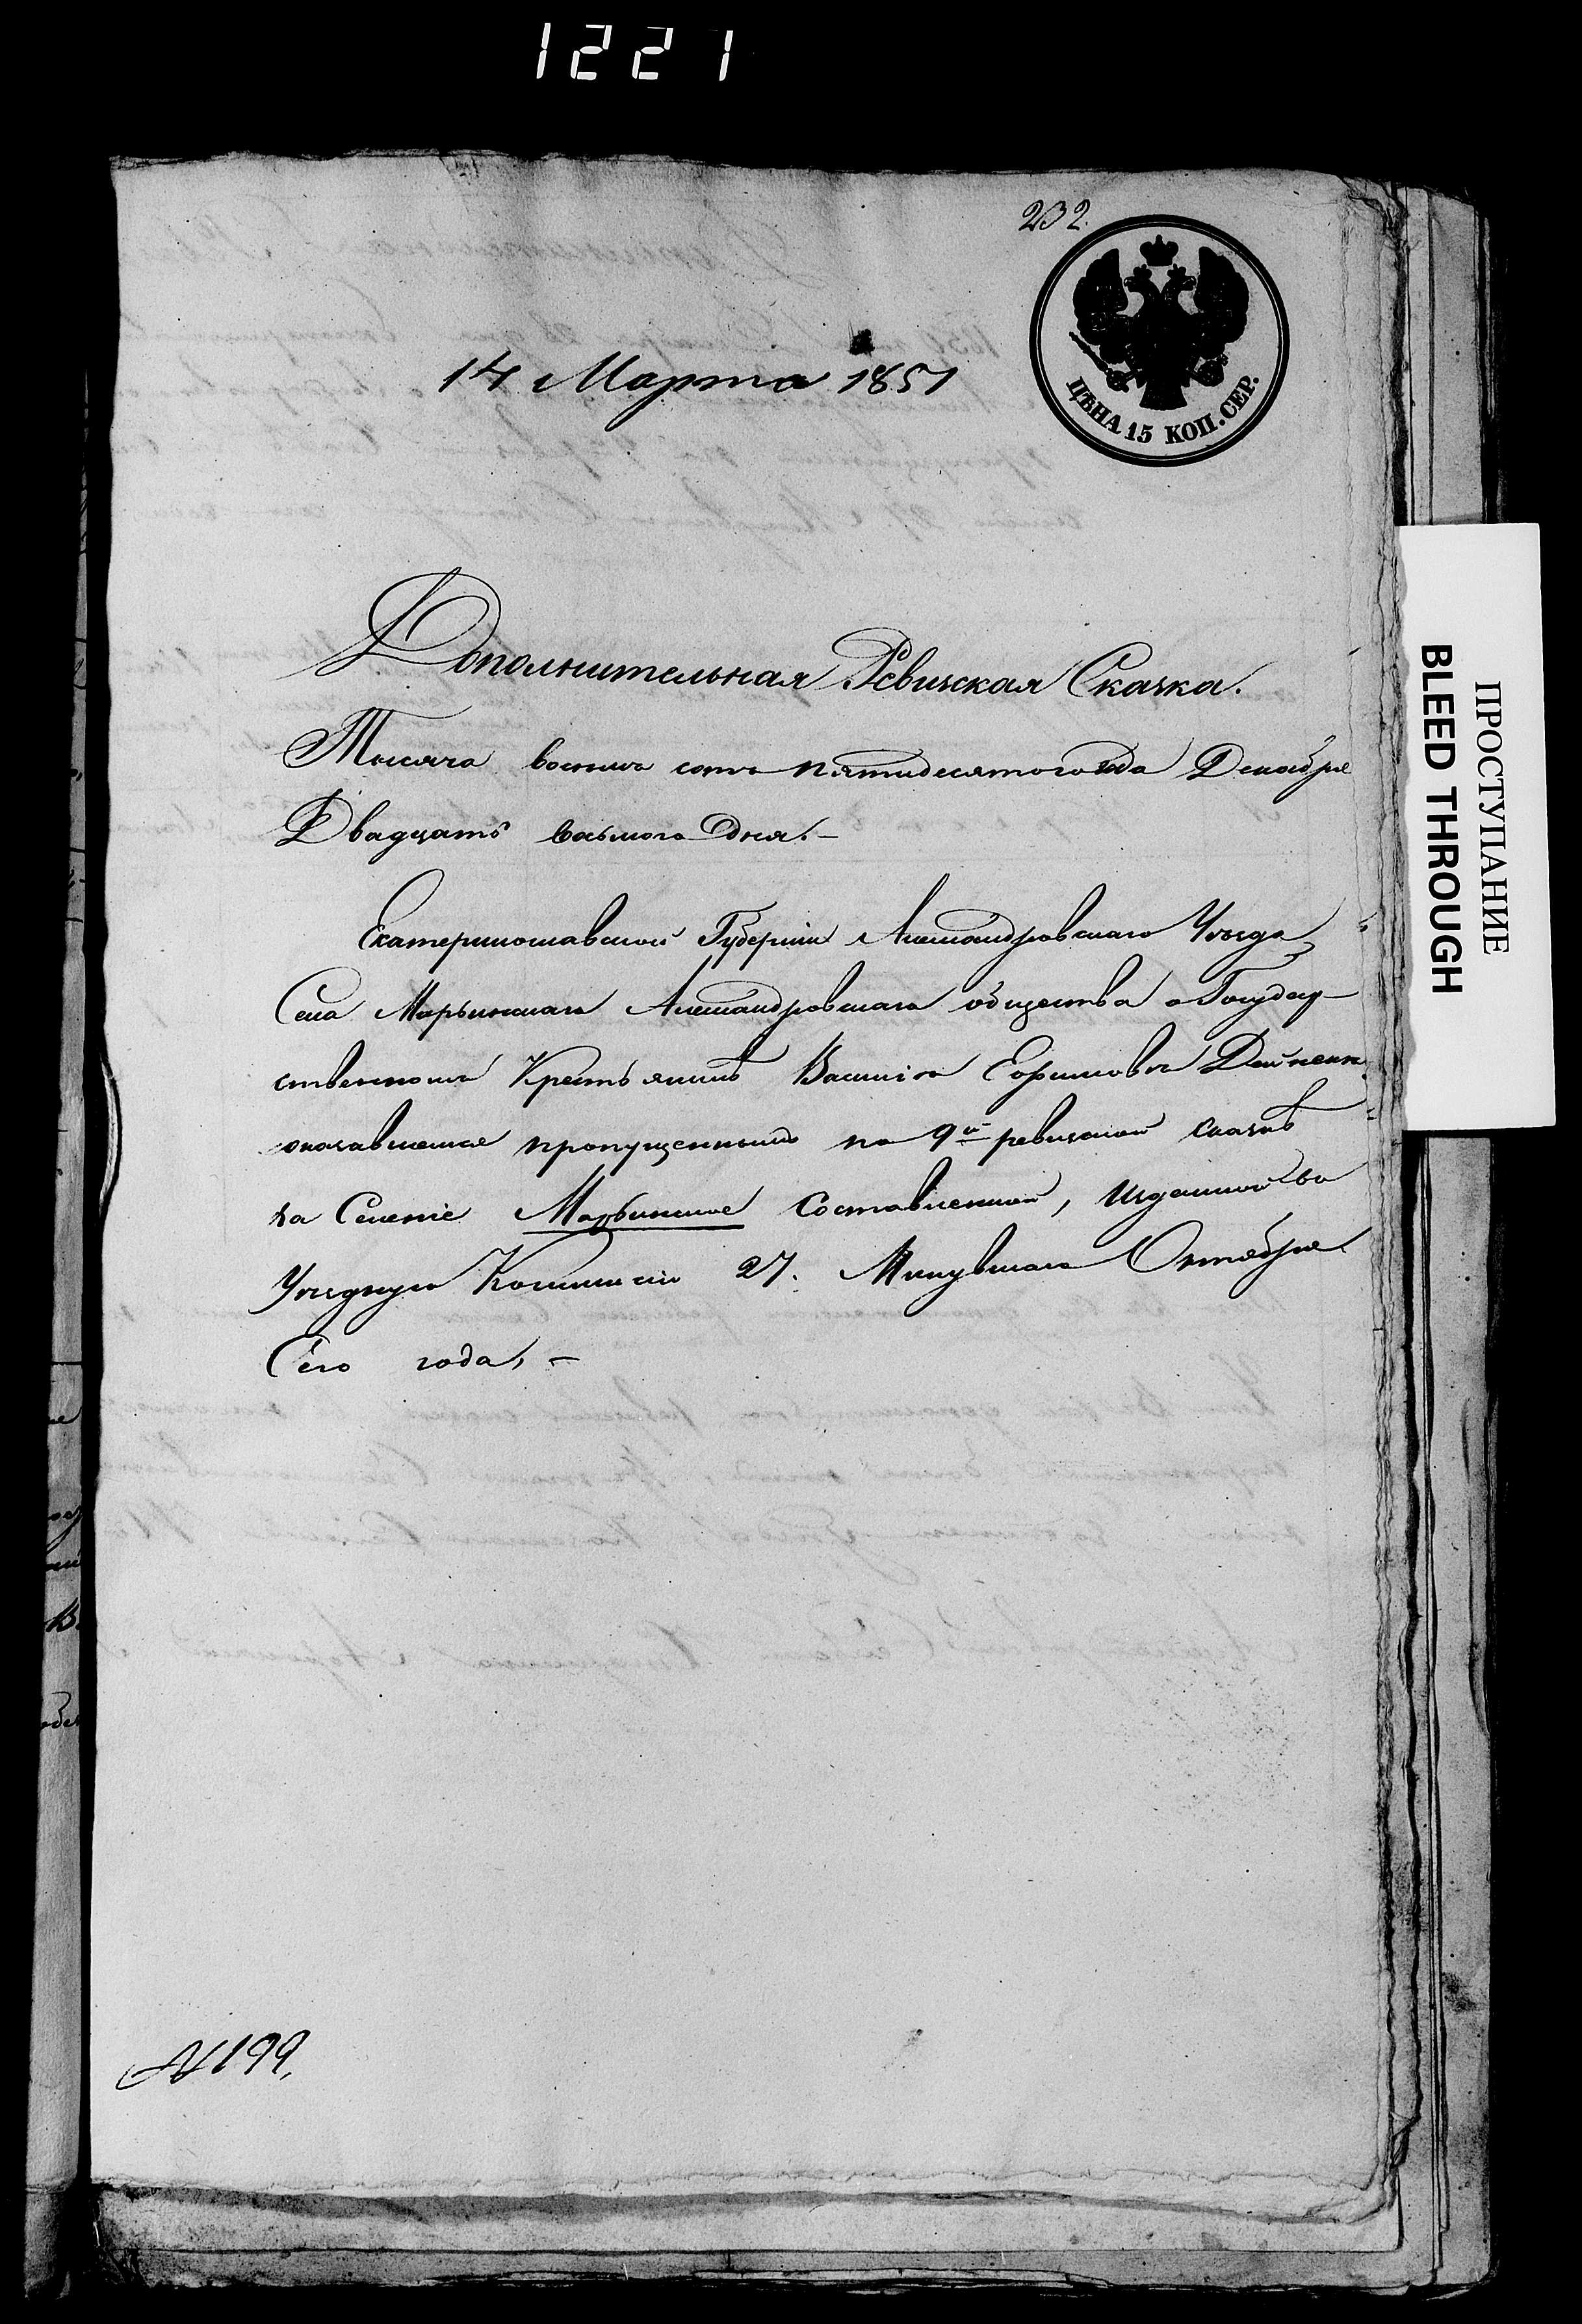 1221
232.
ЦѢНА 15 КОП. СЕР.
14 Марта 1851
Дополнительная Ревизская Сказка.
Тысяча восемь сотъ пятидесятого года Декабря
Двадцать восьмого дня.—
Екатеринославской Губерніи Александровскаго Уѣзда
Села Марьинскаго Александровскаго общества о Государ-
ственномъ Крестьянинѣ Василіѣ Ефимовѣ
оказавшемся пропущеннымъ по 9й ревизской сказкѣ
на Селеніе Марьинское составленной, изданной во
Уѣздную Комиссію 27. Минувшаго Октября
Сего года, —
№ 199.
ПРОСТУПАНИЕ
BLEED THROUGH